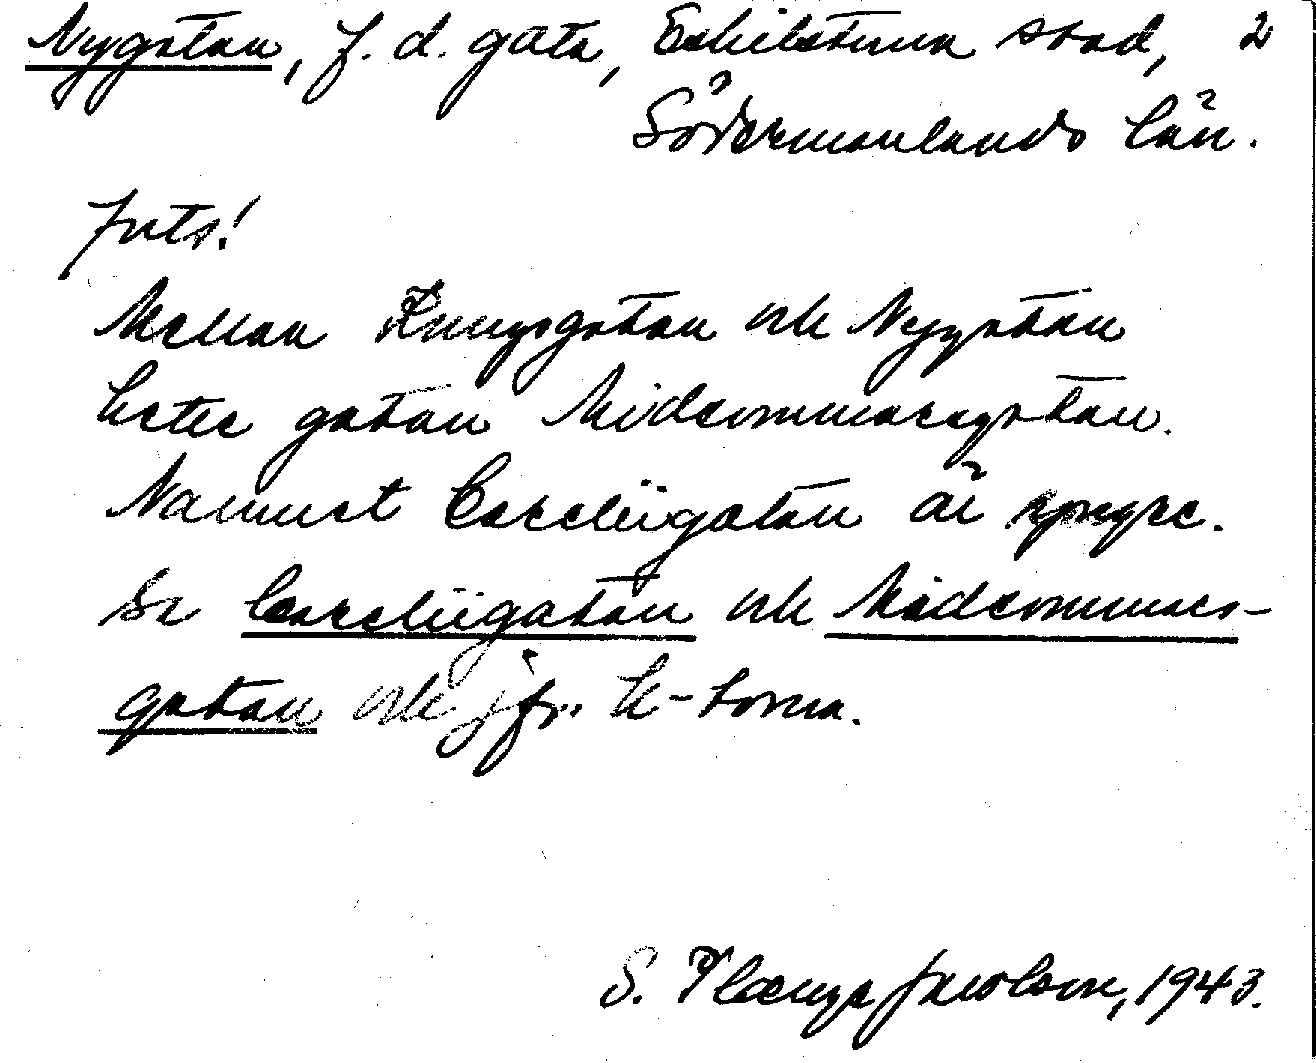 Nygatan, f. d. gata, Eskilstuna stad, 2
Södermanlands län.
Forts!
Mellan Kungsgatan och Nygatan
heter gatan Midsommargatan.
Namnet Careliigatan är yngre.
Se Careliigatan och Midsommars-
gatan och jfr. k-torna.
S. Plænge Jacobson, 1943.